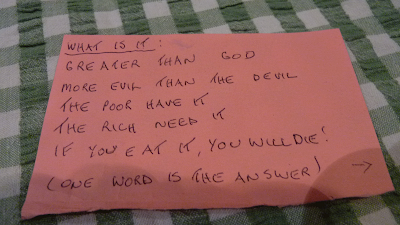 WHAT IS IT:
GREATER THAN GOD
MORE EVIL THAN THE DEVIL
THE POOR HAVE IT
THE RICH NEED IT
IF YOU EAT IT, YOU WILL DIE!
(ONE WORD IS THE ANSWER) →